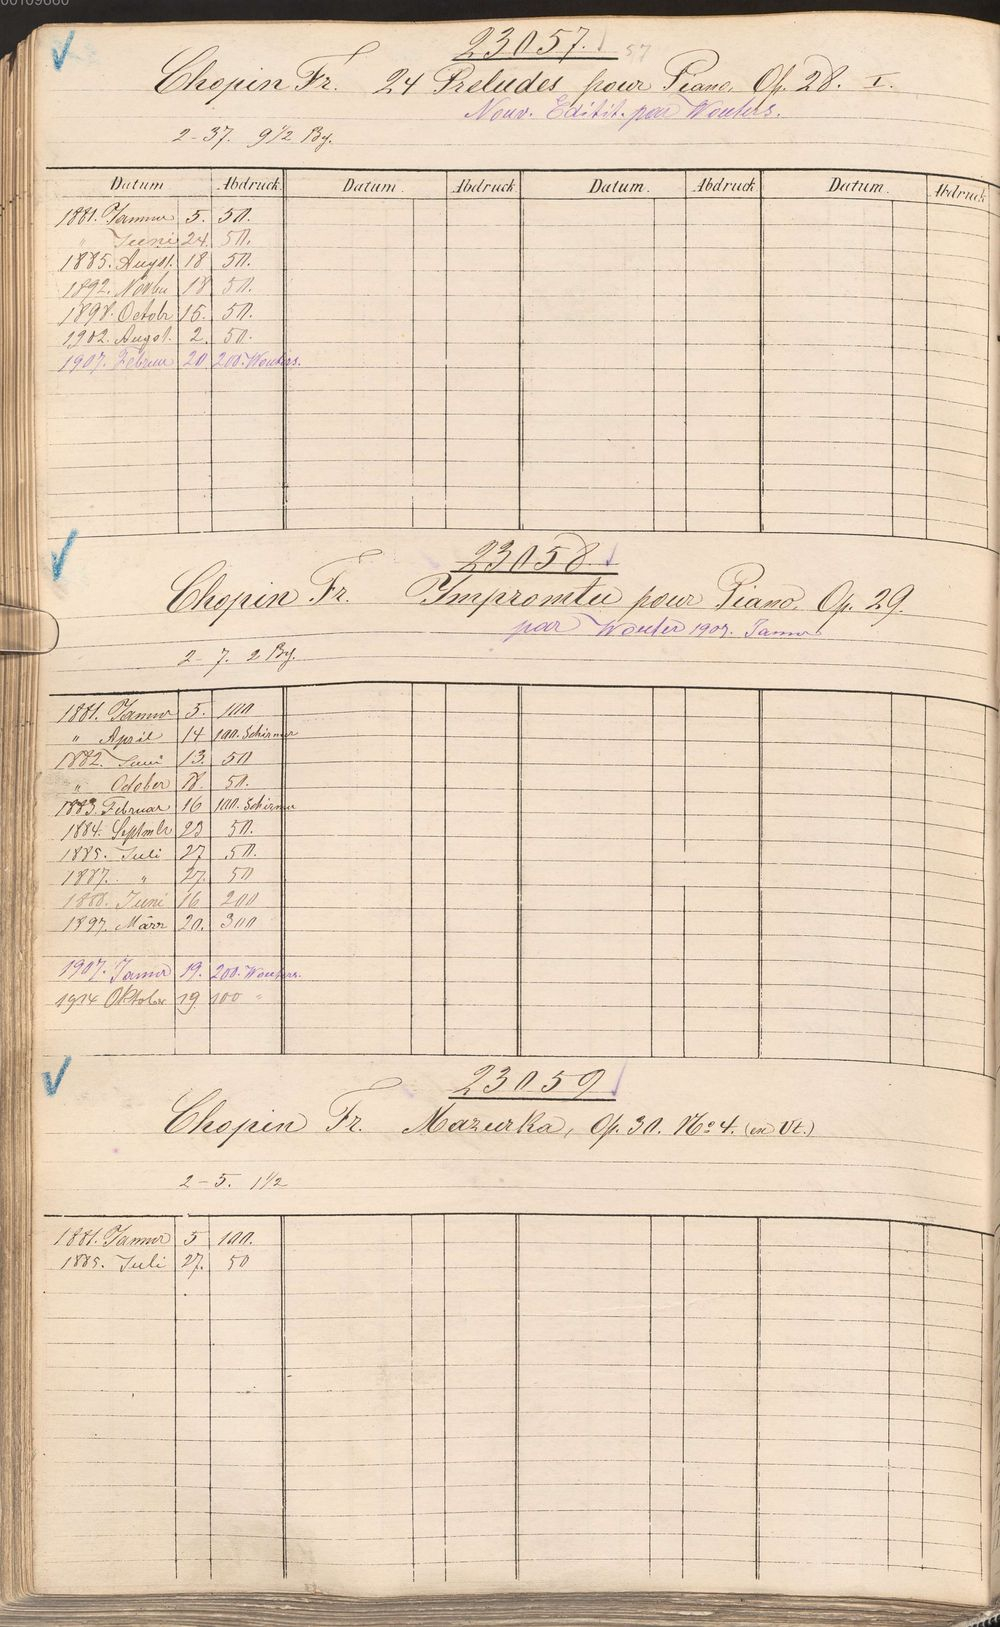 00109660
23057. 57
Chopin Fr. 24 Preludes pour Piano. Op. 28. I.
Nouv. Editit. par Wouters.
2-37. 9 1/2 Bg.
Datum Abdruck Datum. Abdruck Datum. Abdruck Datum. Abdruck
1881. Januar 5. 50.
" Juni 24. 50.
1885. Augst. 18 50.
1892. Novbr 18 50.
1898. Octobr 15. 50.
1902. Augst. 2. 50.
1907. Februar 20. 200. Wouters.
23058.
Chopin Fr. Impromtu pour Piano. Op. 29.
par Wouter 1907. Januar
2-7. 2 Bg.
1881. Januar 5. 100
" April 14 100. Schirmer
1882. Juni 13. 50
" October 18. 50.
1883. Februar 16 100. Schirmer
1884. Septmbr 23 50.
1885. Juli 27 50.
1887. " 27. 50
1888. Juni 16 200
1897. März 20. 300
1907. Januar 19. 200. Wouters.
1914 Oktober 19 100 "
23059
Chopin Fr. Mazurka, Op. 30. No 4. (en Ut.)
2-5. 1 1/2
1881. Januar 5 100.
1885. Juli 27. 50